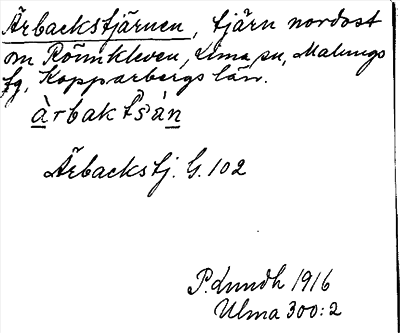 Ärbackstjärnen, tjärn nordost
om Rönnkleven, Lima sn, Malungs
tg, Kopparbergs län.
àrbaktsán
Ärbackstj. G. 102
P. Lundh 1916
Ulma 300:2